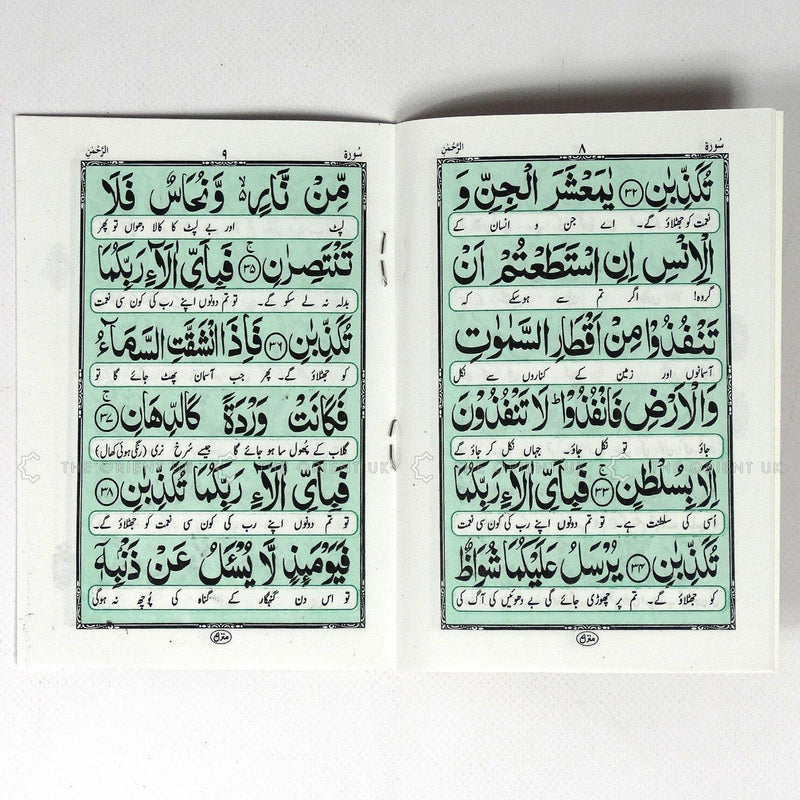 سُورة ٨ الرَّحْمٰن
تُكَذِّبٰنِ ﴿٣٢﴾ يٰمَعْشَرَ الْجِنِّ وَ
نعمت کو جھٹلاؤ گے۔ اے جن و انسان کے
الْاِنْسِ اِنِ اسْتَطَعْتُمْ اَنْ
گروہ! اگر تم سے ہوسکے کہ
تَنْفُذُوْا مِنْ اَقْطَارِ السَّمٰوٰتِ
آسمانوں اور زمین کے کناروں سے نکل
وَالْاَرْضِ فَانْفُذُوْا ؕ لَا تَنْفُذُوْنَ
جاؤ تو نکل جاؤ۔ جہاں نکل کر جاؤ گے
اِلَّا بِسُلْطٰنٍ ﴿٣٣﴾ۚ فَبِاَيِّ اٰلَآءِ رَبِّكُمَا
اُسی کی سلطنت ہے۔ تو تم دونوں اپنے رب کی کون سی نعمت
تُكَذِّبٰنِ ﴿٣٤﴾ يُرْسَلُ عَلَيْكُمَا شُوَاظٌ
کو جھٹلاؤ گے۔ تم پر چھوڑی جائے گی بے دھوئیں کی آگ کی
سُورة ٩ الرَّحْمٰن
مِّنْ نَّارٍ ۙ وَّنُحَاسٌ فَلَا
لپٹ اور بے لپٹ کا کالا دھواں تو پھر
تَنْتَصِرٰنِ ﴿٣٥﴾ۚ فَبِاَيِّ اٰلَآءِ رَبِّكُمَا
بدلہ نہ لے سکو گے۔ تو تم دونوں اپنے رب کی کون سی نعمت
تُكَذِّبٰنِ ﴿٣٦﴾ فَاِذَا انْشَقَّتِ السَّمَآءُ
کو جھٹلاؤ گے۔ پھر جب آسمان پھٹ جائے گا تو
فَكَانَتْ وَرْدَةً كَالدِّهَانِ ﴿٣٧﴾ۚ
گلاب کے پھول سا ہو جائے گا جیسے سُرخ نری (رنگی ہوئی کھال)
فَبِاَيِّ اٰلَآءِ رَبِّكُمَا تُكَذِّبٰنِ ﴿٣٨﴾
تو تم دونوں اپنے رب کی کون سی نعمت کو جھٹلاؤ گے۔
فَيَوْمَئِذٍ لَّا يُسْـَٔلُ عَنْ ذَنْۢبِهٖۤ
تو اس دن گنہگار کے گناہ کی پُوچھ نہ ہوگی
THE ORIENT UK
THE ORIENT UK
THE ORIENT UK